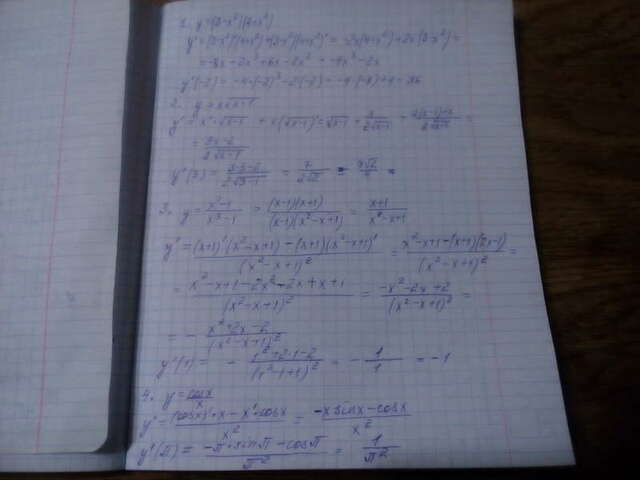 1. y=(3-x²)(4+x²)
y'=(3-x²)'(4+x²)+(3-x²)(4+x²)'= -2x(4+x²)+2x(3-x²)=
= -8x-2x³+6x-2x³ = -4x³-2x
y'(-2) = -4·(-2)³-2·(-2) = -4·(-8)+4 = 36
2. y = x√x-1
y' = x'·√x-1 + x(√x-1)' = √x-1 + x/2√x-1 = 2(x-1)+x/2√x-1 =
= 3x-2/2√x-1
y'(3) = 3·3-2/2√3-1 = 7/2√2 = 7√2/4
3. y = x²-1/x³-1 = (x-1)(x+1)/(x-1)(x²-x+1) = x+1/x²-x+1
y' = (x+1)'(x²-x+1)-(x+1)(x²-x+1)'/(x²-x+1)² = x²-x+1-(x+1)(2x-1)/(x²-x+1)² =
= x²-x+1-2x²-2x+x+1/(x²-x+1)² = -x²-2x+2/(x²-x+1)² =
= - x²+2x-2/(x²-x+1)²
y'(1) = - 1²+2·1-2/(1²-1+1)² = - 1/1 = -1
4. y = cosx/x
y' = (cosx)'·x-x'·cosx/x² = -xsinx-cosx/x²
y'(π) = -π·sinπ-cosπ/π² = 1/π²